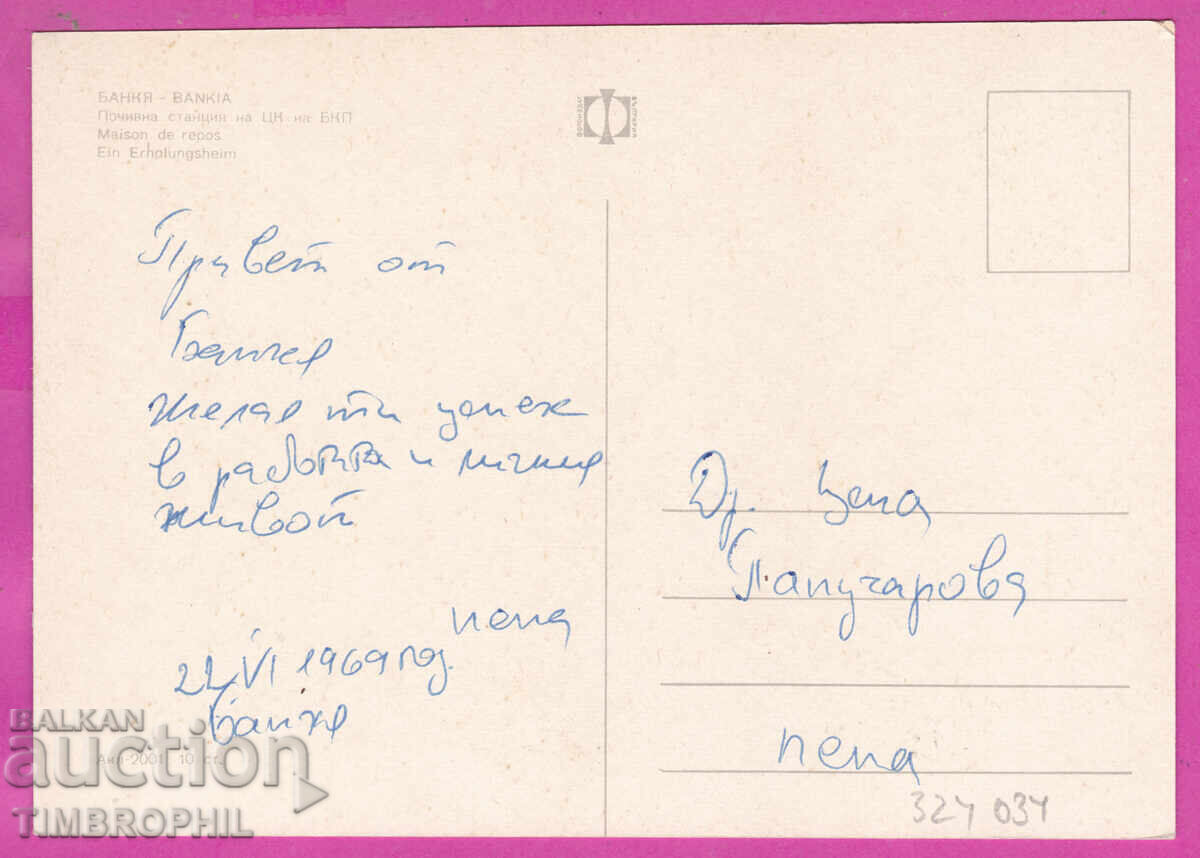 БАНКЯ - BANKIA
Почивна станция на ЦК на БКП
Maison de repos
Ein Erholungsheim
ФОТОИЗДАТ
БЪЛГАРИЯ
Привет от
Банкя
желая ти успех
в работата и личния
живот
пепа
22 VI 1969 год.
Банкя
Акл-2001 10 ст.
Др. Цепа
Папучарова
пепа
324 034
BALKAN
auction
TIMBROPHIL